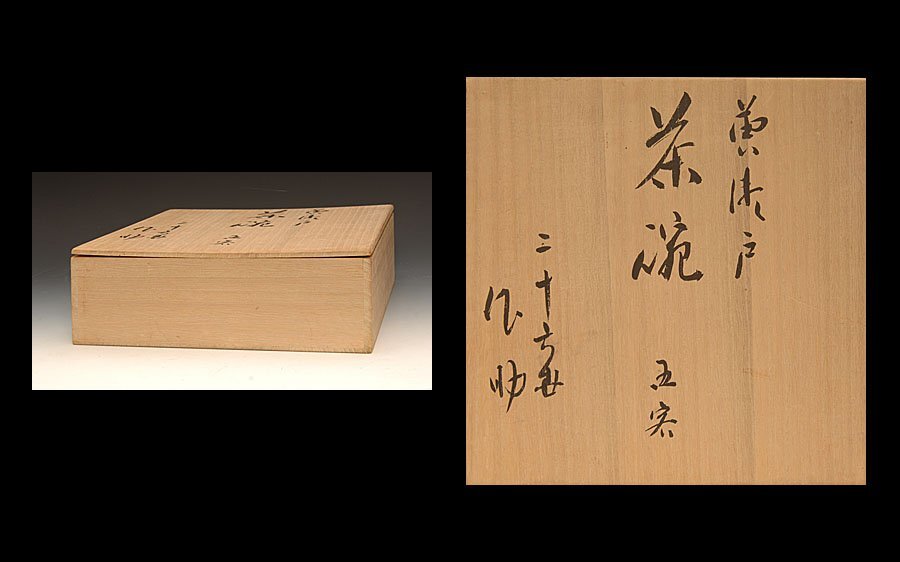 黄瀬戸
茶碗 五客
二十六世
作助